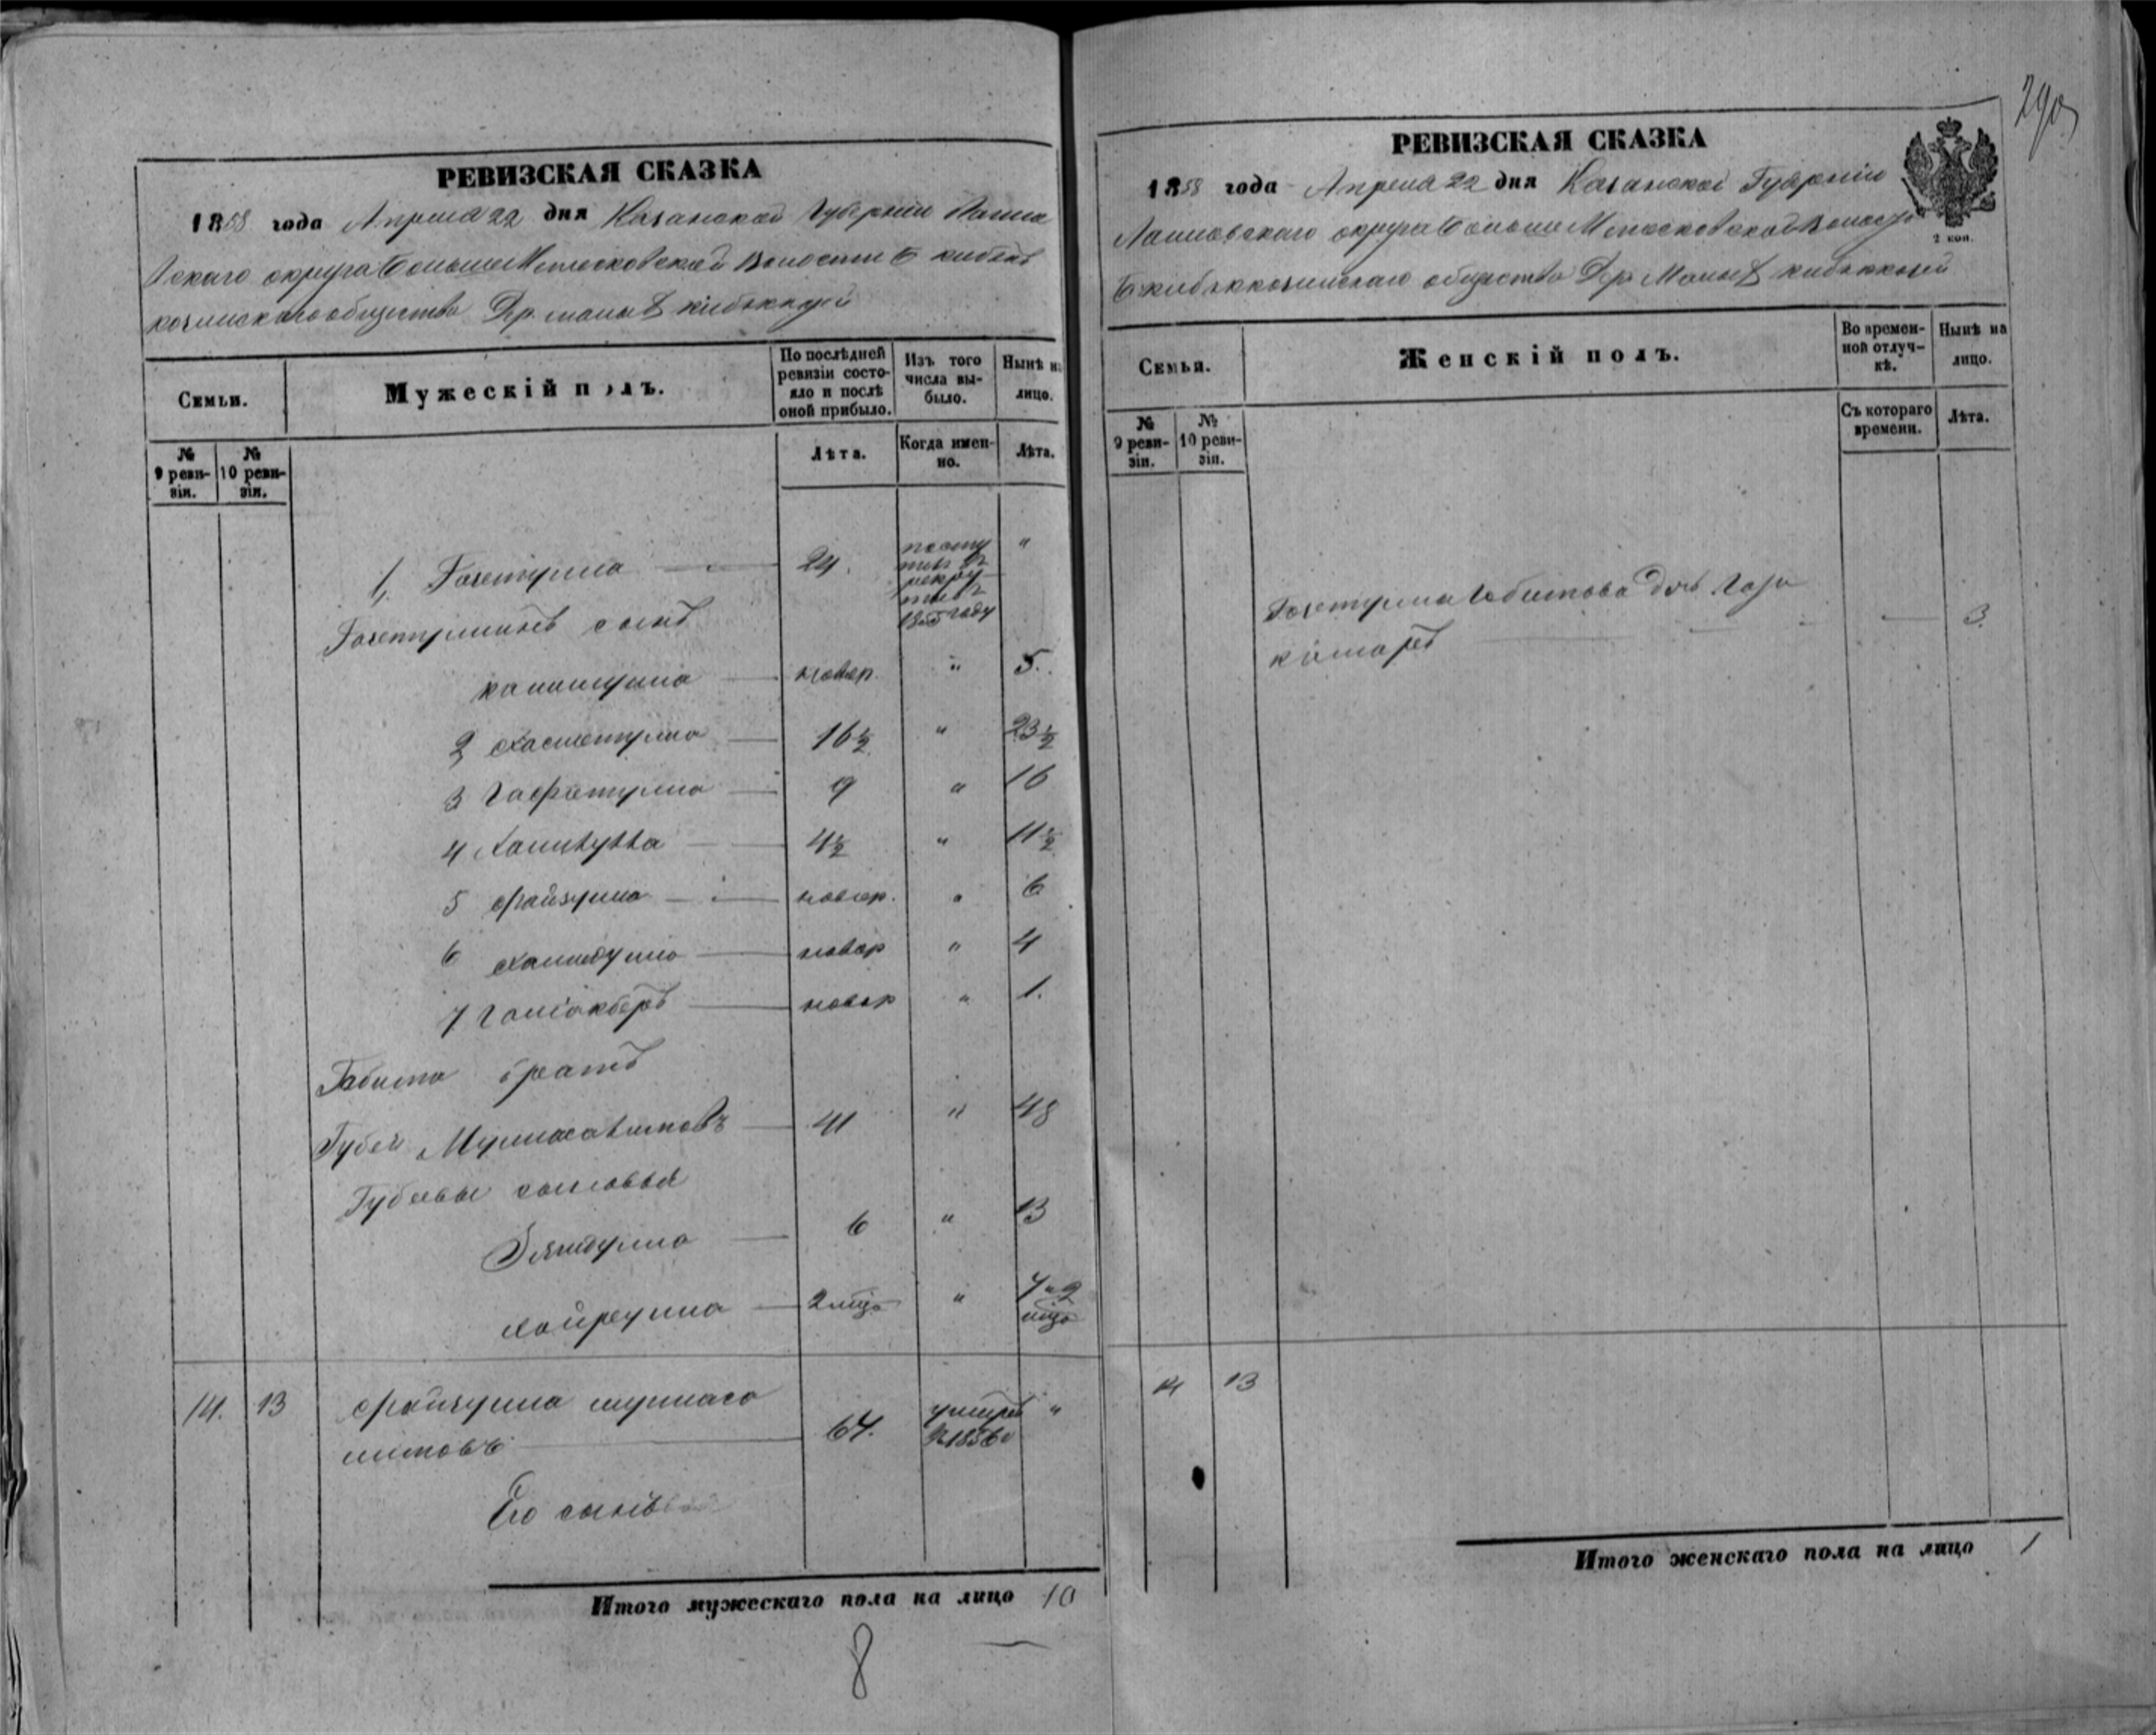 РЕВИЗСКАЯ СКАЗКА
1858 года Апреля 22 дня Казанской Губернiи Лаише
вскаго округа Больше Метесковской Волости Б кибяк
козинскаго общества Дер. малы кибяккозей
Семьи.
Мужескiй полъ.
По послѣдней ревизiи состояло и послѣ оной прибыло.
Изъ того числа выбыло.
Нынѣ на лицо.
№ 9 ревизiи.
№ 10 ревизiи.
Лѣта.
Когда именно.
Лѣта.
1, Гозетулла 24. посту
пилъ въ
рекру
ты въ
1855 году "
Гозетуллинъ сынъ
калимулла новор. " 5.
2 Хасметулла 16½ " 23½
3 Гафiетулла 9 " 16
4 4½ " 11½
5 файзулла новор. " 6
6 новор " 4
7 Галiакберъ новор " 1.
Габита братъ
Губей 41 " 48
Губеевы сыновья
6 " 13
хайрулла 2 мца " 7 и 2
мца
14. 13 файзулла мулласа
литовъ 67. умеръ
в 1856 г "
Его сыновья
Итого мужескаго пола на лицо 10
8
290
РЕВИЗСКАЯ СКАЗКА
1858 года Апреля 22 дня Казанской Губернiи
Лаишевскаго округа Больше Метесковской Волости
Б кибяккозинскаго общества Дер. Малы кибяккозей
2 коп.
Семьи.
Женскiй полъ.
Во временной отлучкѣ.
Нынѣ на лицо.
№ 9 ревизiи.
№ 10 ревизiи.
Съ котораго времени.
Лѣта.
Гозетулла Габитова дочь
3.
14 13
Итого женскаго пола на лицо 1